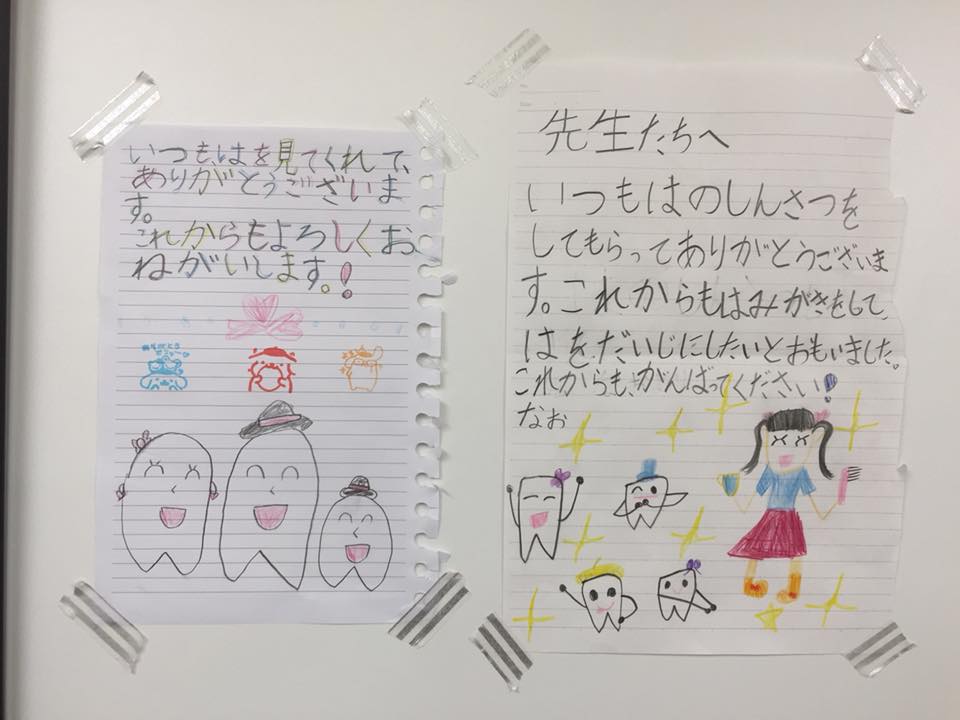 いつも、はを見てくれて、
ありがとうございま
す。
これからもよろしくお
ねがいします。!
ありがとう
先生たちへ
いつもはのしんさつを
してもらってありがとうございま
す。これからもはみがきをして、
はをだいじにしたいとおもいました。
これからも、がんばってください!
なお